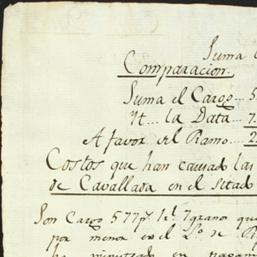 Suma
Comparacion.
Suma el Cargo... 5
Yt... la Data... 7.
A favor del Ramo... 2
Costos que han causado las
de Cavallada en el sitado
Son Cargo 577 ps 1 rl 7 granos que
por menor en el Lo. de R
ha